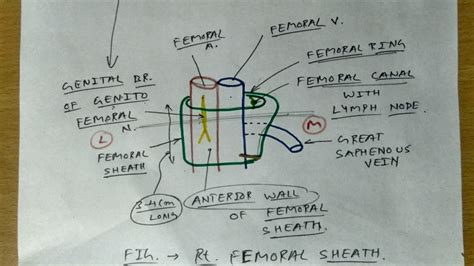 FEMORAL
A.
FEMORAL V.
FEMORAL RING
FEMORAL CANAL
WITH
LYMPH NODE.
GENITAL BR.
OF GENITO
FEMORAL
N.
L
M
FEMORAL
SHEATH
GREAT
SAPHENOUS
VEIN
3-4cm
LONG
ANTERIOR WALL
OF FEMORAL
SHEATH.
FIG. → Rt. FEMORAL SHEATH.